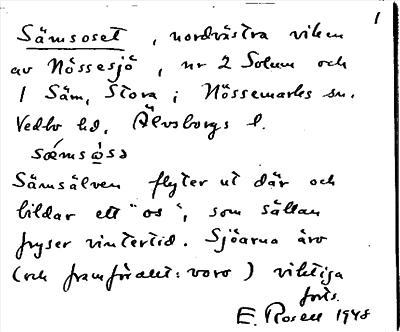 1
Sämsoset, nordvästra viken
av Nössesjö, nr 2 Solum och
1 Säm, Stora i Nössemarks sn.
Vedbo hd, Älvsborgs l.
sǽmsɷ̀sə
Sämsälven flyter ut där och
bildar ett "os", som sällan
fryser vintertid. Sjöarna äro
(och framförallt: voro) viktiga
forts.
E. Rosell 1948